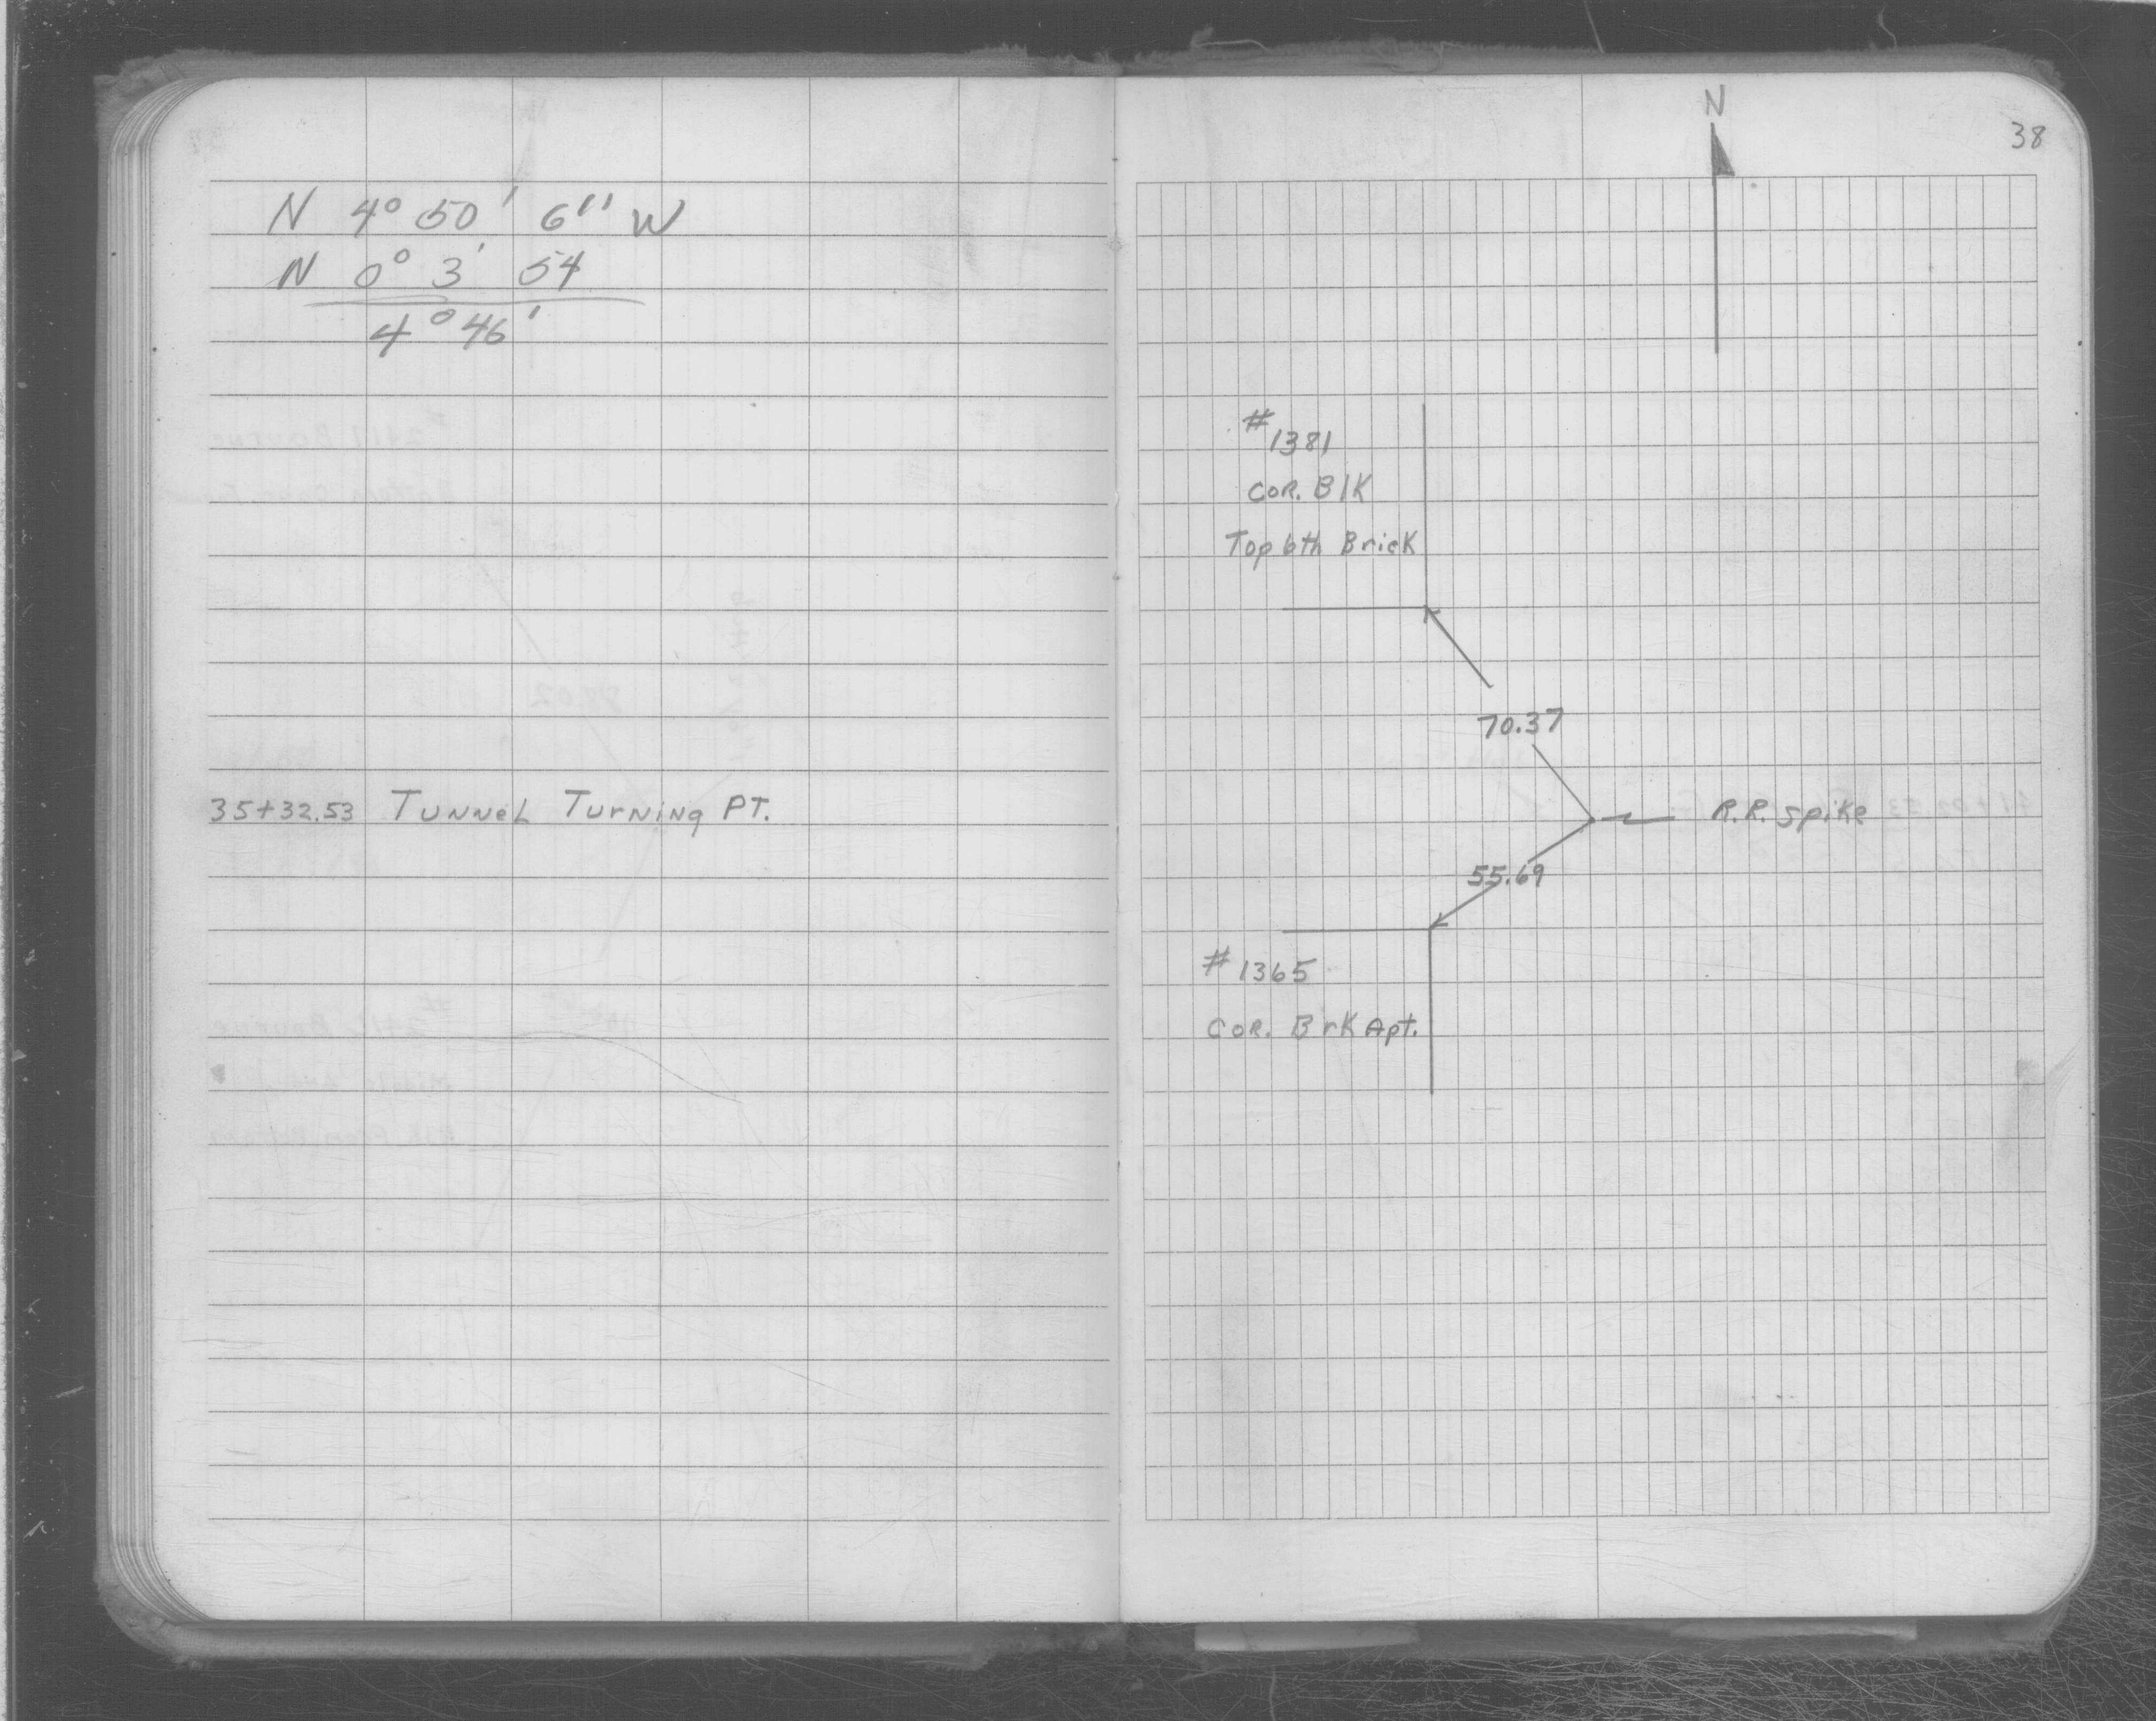 N 4° 50' 6" W
N 0° 3' 54
4° 46'
35+32.53 Tunnel Turning PT.
N
38
#1381
Cor. Blk
Top 6th Brick
70.37
R.R. Spike
55.69
#1365
Cor. Brk Apt.